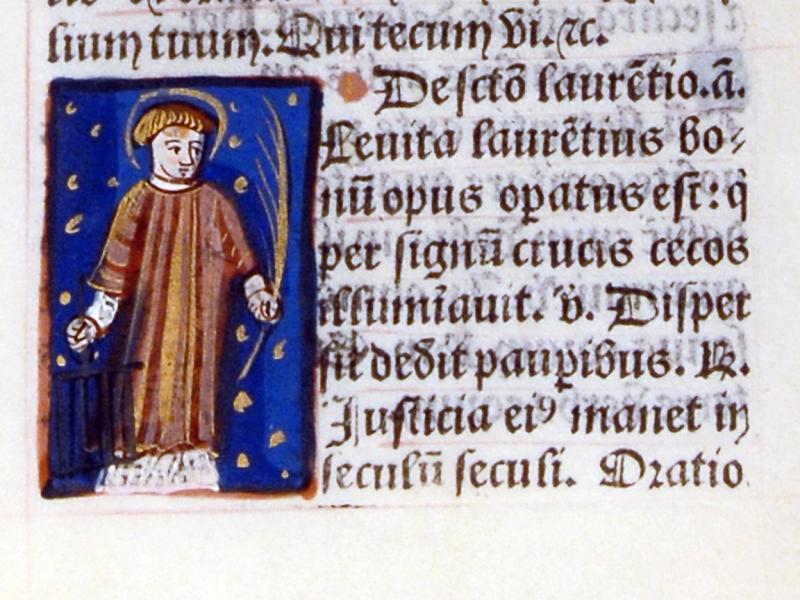 lium tuum. Qui tecum vi. ⁊c.
De scto᷒ laurẽtio. ã.
Leuita laurẽtius bo⸗
nũ opus opatus est: q̇
per signũ crucis cecos
illumĩauit. v̇. Disper
sit dedit pauꝑibus. ℟.
Justicia eiꝰ manet in
seculũ seculi. Oratio